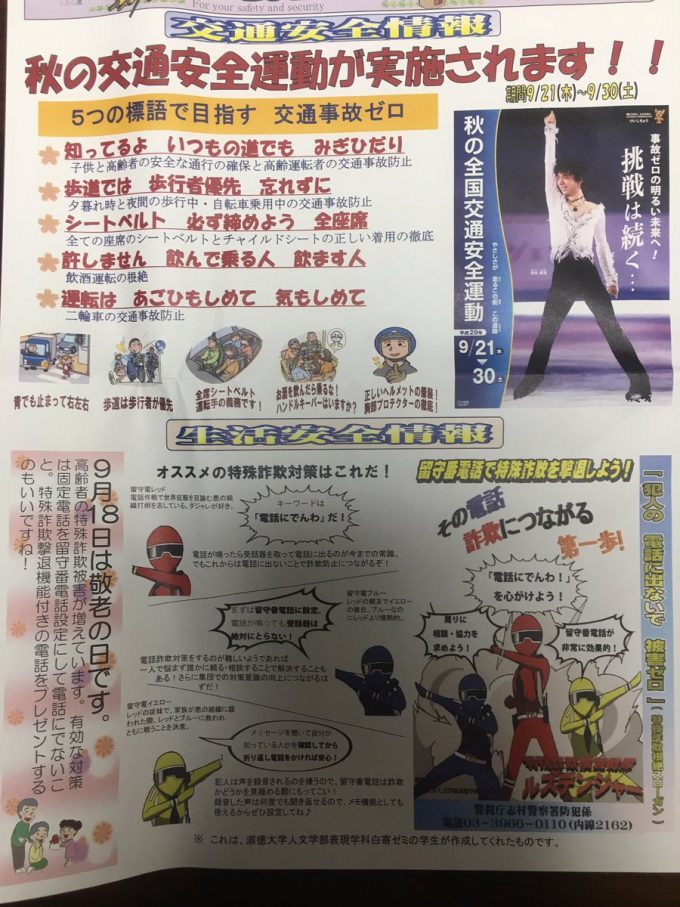 For your safety and security
交通安全情報
秋の交通安全運動が実施されます！！
期間9/21(木)～9/30(土)
5つの標語で目指す 交通事故ゼロ
知ってるよ いつもの道でも みぎひだり
子供と高齢者の安全な通行の確保と高齢運転者の交通事故防止
歩道では 歩行者優先 忘れずに
夕暮れ時と夜間の歩行中・自転車乗用中の交通事故防止
シートベルト 必ず締めよう 全座席
全ての座席のシートベルトとチャイルドシートの正しい着用の徹底
許しません 飲んで乗る人 飲ます人
飲酒運転の根絶
運転は あごひもしめて 気もしめて
二輪車の交通事故防止
事故ゼロの明るい未来へ！
挑戦は続く…
秋の全国交通安全運動
やさしさが 走るこの街 この道路
平成29年
9/21木
30土
青でも止まって右左右
歩道は歩行者が優先
全席シートベルト
運転手の義務です！
お酒を飲んだら乗るな！
ハンドルキーパーはいますか？
正しいヘルメットの着装！
胸部プロテクターの徹底！
生活安全情報
9月18日は敬老の日です。
高齢者の特殊詐欺被害が増えています。有効な対策
は固定電話を留守番電話設定にして電話にでないこ
と。特殊詐欺撃退機能付きの電話をプレゼントする
のもいいですね！
オススメの特殊詐欺対策はこれだ！
留守電レッド
電話作戦で世界征服を目論む悪の組
織打倒を志している。ダジャレが好き。
キーワードは
「電話にでんわ」だ！
電話が鳴ったら受話器を取って電話に出るのが今までの常識。
でもこれからは電話に出ないことで詐欺防止につながるぞ！
留守電ブルー
レッドの親友でイエロー
の彼氏。ブルーなの
にレッドより情熱的。
まずは留守番電話に設定。
電話が鳴っても受話器は
絶対にとらない！
電話詐欺対策をするのが難しいようであれば
一人で悩まず誰かに頼る・相談することで解決することも
ある！さらに集団での対策意識の向上につながるは
ずだ！
留守電イエロー
レッドの従妹で、家族が悪の組織に襲
われた際、レッドとブルーに救われ
ともに戦うことを決意。
メッセージを聞いて自分が
知っている人かを確認してから
折り返し電話をかければ安心！
犯人は声を録音されるのを嫌うので、留守番電話は詐欺
かどうかを見極める鍵にもってこい！
録音した声は何度でも聞き返せるので、メモ機能としても
使えるからぜひ設定してね♪
留守番電話で特殊詐欺を撃退しよう！
その電話
詐欺につながる
第一歩！
「電話にでんわ！」
を心がけよう！
周りに
相談・協力を
求めよう！
留守番電話が
非常に効果的！
ルスデンジャー
警視庁志村警察署防犯係
電話03－3966－0110(内線2162)
「犯人の 電話に出ないで 被害ゼロ」(特殊詐欺撲滅スローガン)
※ これは、淑徳大学人文学部表現学科白寄ゼミの学生が作成してくれたものです。